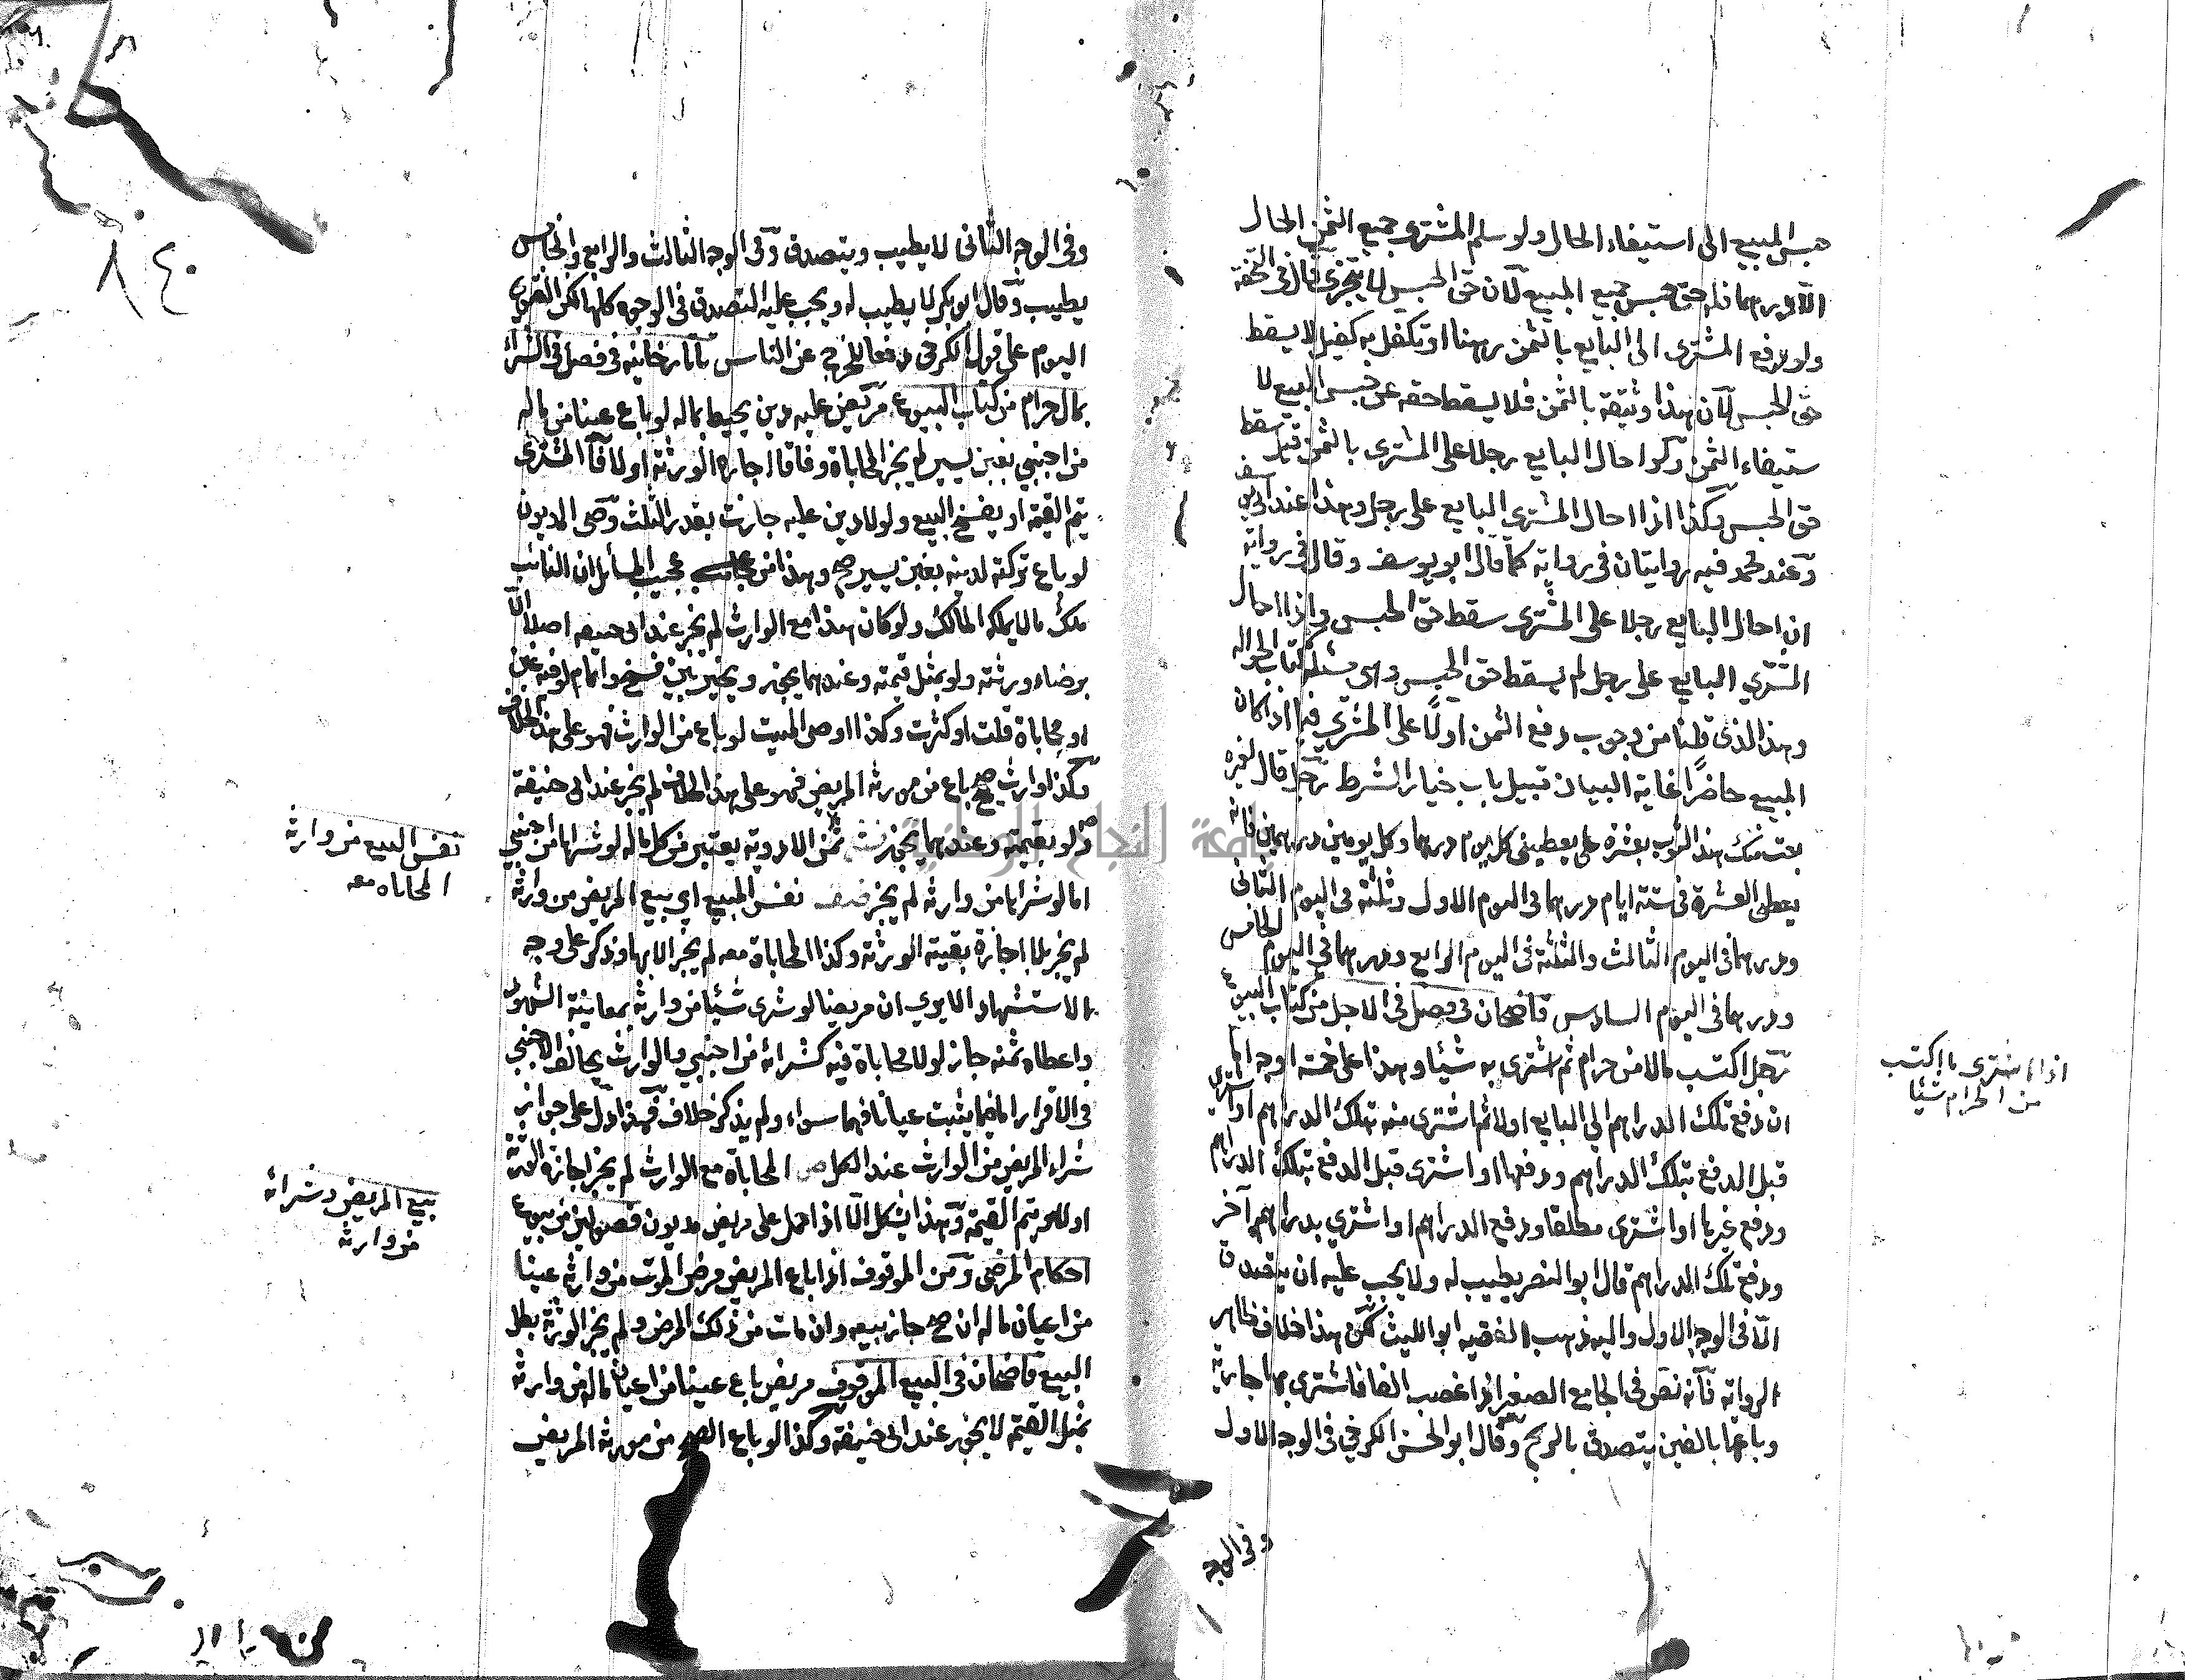 حبس المبيع الى استيفاء الحال ولو سلم المشترى جميع الثمن الحال
الا درهما فله حق حبس جميع المبيع لان حق الحبس لا يتجزى قال فى التحفة
ولو دفع المشترى الى البايع بالثمن رهنا او تكفل به كفيل لا يسقط
حق الحبس لان هذا وثيقة بالثمن فلا يسقط حقه عن حبس المبيع لا
ستيفاء الثمن وكو احال البايع رجلا على المشترى بالثمن قبل سقط
حق الحبس وكذا اذا احال المشترى البايع على رجل وهذا عند ابى يوسف
وعند محمد فيه روايتان فى رواية كما قال ابو يوسف وقال فى رواية
ان احال البايع رجلا على المشترى سقط حق الحبس واذا احال
المشترى البايع على رجل لم يسقط حق الحبس وهى مسئلة كتاب الحوالة
وهذا الذى قلنا من وجوب دفع الثمن اولا على المشترى فيما اذا كان
المبيع حاضرا غاية البيان قبيل باب خيار الشرط رجل قال لغيره
بعت منك هذا الثوب بعشرة على يعطينى كل يوم درهما وكل يومين درهمين فانه
يعطى العشرة فى ستة ايام درهما فى اليوم الاول وثلثة فى اليوم الثانى
ودرهما فى اليوم الثالث والثلثة فى اليوم الرابع ودرهما فى اليوم الخامس
ودرهما فى اليوم السادس قاضيخان فى فصل فى الاجل من كتاب البيوع
رجل اكتسب مالا من حرام ثم اشترى به شيئا وهذا على خمسة اوجه اما
ان دفع تلك الدراهم الى البايع اولا ثم اشترى منه بتلك الدراهم او اشترى
قبل الدفع بتلك الدراهم ودفعها او اشترى قبل الدفع بتلك الدراهم
ودفع غيرها او اشترى مطلقا ودفع الدراهم او اشترى بدراهم آخر
ودفع تلك الدراهم قال ابو النصر يطيب له ولا يجب عليه ان يتصدق
الا فى الوجه الاول واليه ذهب الفقيه ابو الليث لكن هذا خلاف ظاهر
الرواية فانه نص فى الجامع الصغير اذا غصب الفا فاشترى بها جارية
وباعها بالفين يتصدق بالربح وقال ابو الحسن الكرخى فى الوجه الاول
وفى الوجه
اذا اشترى ما اكتسب
من الحرام شيئا
وفى الوجه الثانى لا يطيب ويتصدق وفى الوجه الثالث والرابع والخامس
يطيب وقال ابو بكر لا يطيب له ويجب عليه التصدق فى الوجوه كلها لكن الفتوى
اليوم على قول الكرخى دفعا للحرج عن الناس تاتارخانيه فى فصل فى الشراء
بمال حرام من كتاب البيوع مريض عليه دين يحيط بماله لو باع عينا من ماله
من اجنبي بغبن يسير لم يجز المحاباة وفاقا اجازه الورثة اولا فا المشترى
يتم القيمة او يفسخ البيع ولو لا دين عليه جازت بقدر الثلث وصى المديون
لو باع تركته لدينه بغبن يسير صح وهذا من عجيب المسائل ان النائب
ملك ما لا يملكه المالك ولو كان هذا مع الوارث لم يجز عند ابى حنيفه اصلا الا
برضاء ورثته ولو بمثل قيمته وعندهما يجوز ويخير بين فسخ واتمام لو فيه غبن
او محاباة قلت او كثرت وكذا اوصى الميت لو باع من الوارث فهو على هذا الخلاف
وكذا وارث صح باع من مورثه المريض فهو على هذا الخلاف لم يجز عند ابى حنيفة
ولو بقيمته وعندهما يجوز ثمن الادوية يعتبر من كل ماله لو شراها من اجنبي
اما لو شراها من وارثه لم يجز نفس المبيع اي بيع المريض من وارثه
لم يجز بلا اجازة بقية الورثة وكذا المحاباة معه لم يجز الا بها وذكر على وجه
الاستشهاد الا يرى ان مريضا لو شرى شيئا من وارثه بمعاينة الشهود
واعطاه ثمنه جاز لو لا محاباة فيه كشرائه من اجنبي والوارث يخالف الاجنبي
فى الاقرار اما فيما يثبت عيانا فهما سواء ولم يذكر خلاف فهذا دل على جواز
شراء المريض من الوارث عند الكل المحاباة مع الوارث لم يجز اجازه الورثة
اولا ويتم القيمة وهذا يشكل الا اذا حمل على مريض مديون فصولين من بيوع
احكام المرضى ومن الموقوف اذا باع المريض مرض الموت من وارثه عينا
من اعيان ماله ان صح جاز بيعه وان مات من ذلك المرض ولم يجز الورثة بطل
البيع قاضيخان فى البيع الموقوف مريض باع عينا من اعيان ماله من وارثه
بمثل القيمة لا يجوز عند ابى حنيفة وكذا لو باع الصحيح من مورثه المريض
نفس البيع من وارثه
المحاباه معه
بيع المريض وشرائه
من وارثه
٨٤٠
جامعة النجاح الوطنية